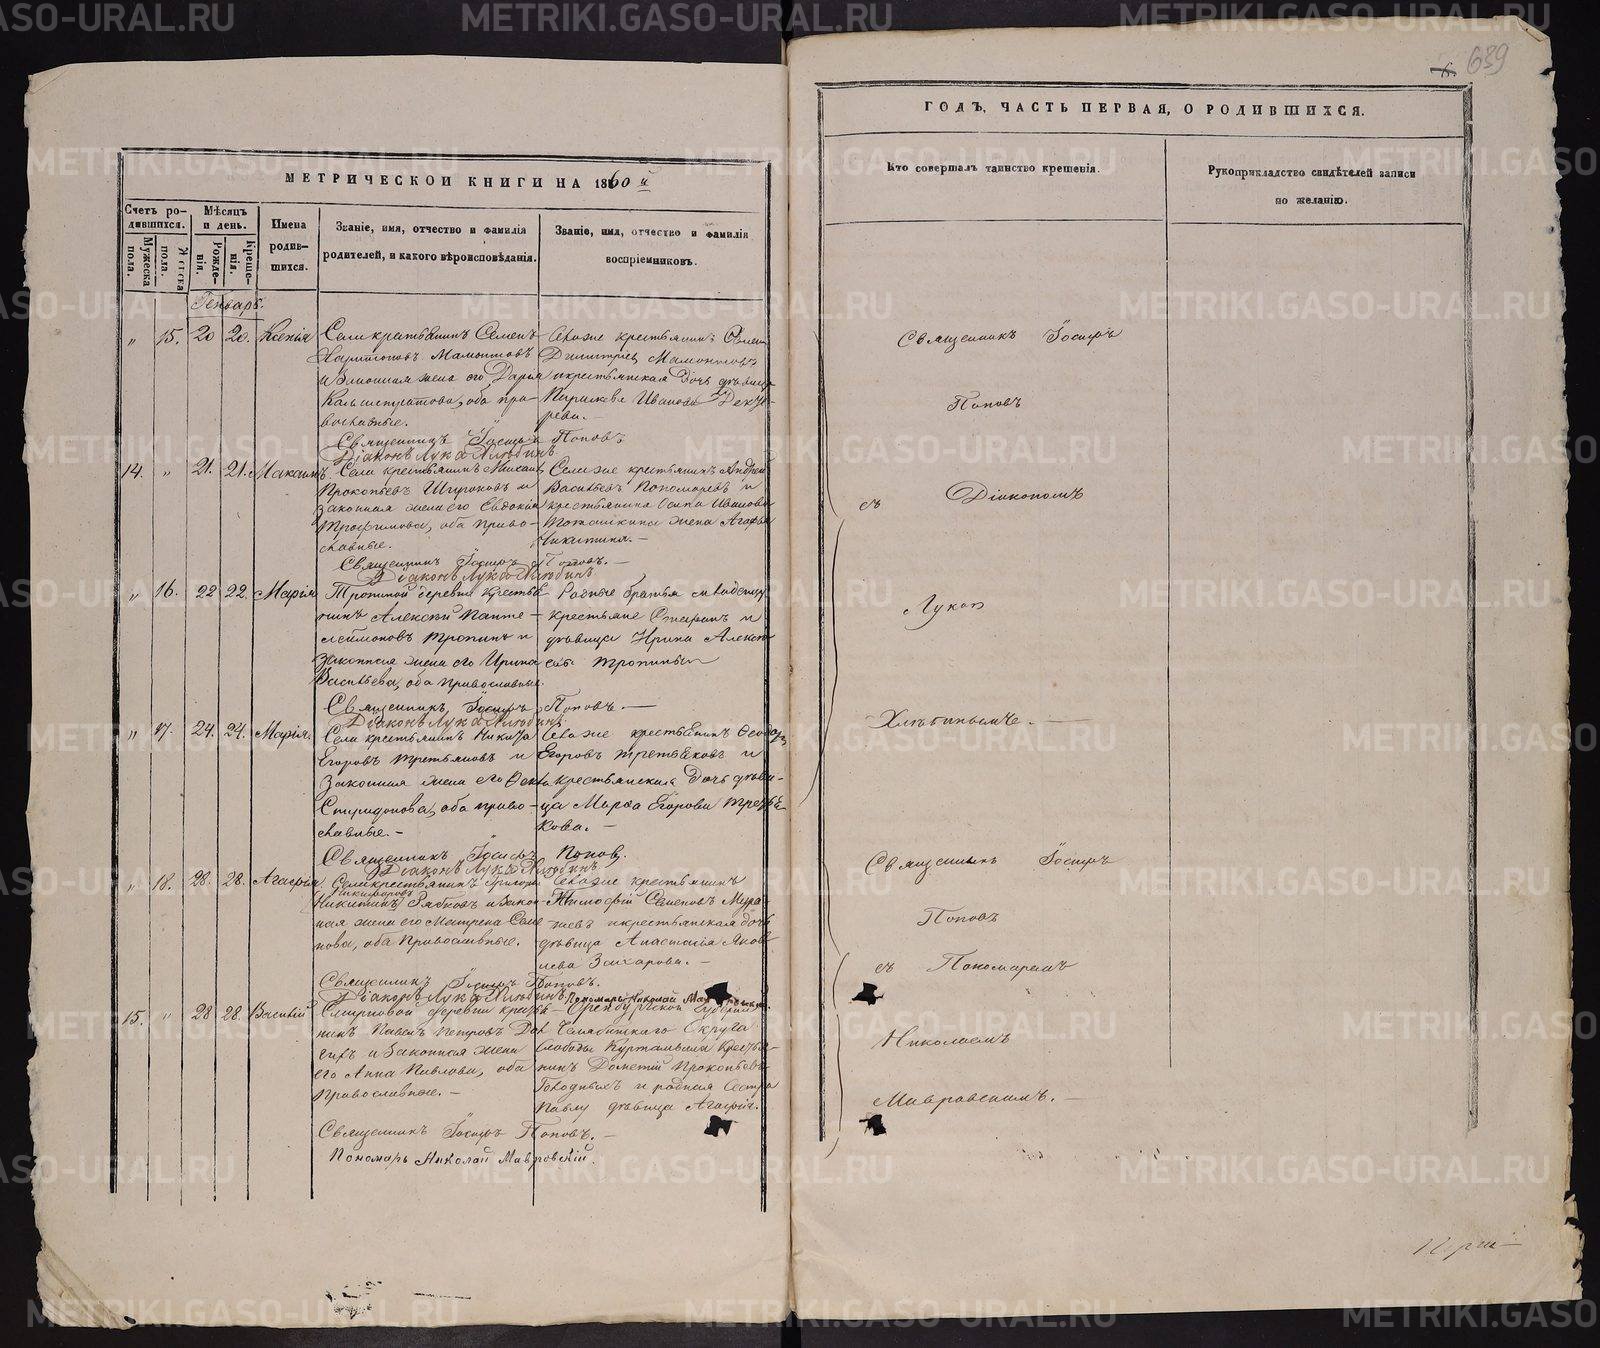 МЕТРИЧЕСКОЙ КНИГИ НА 1860 й
Счетъ ро-
дившихся.
Мужеска
пола.
Женска
пола.
Мѣсяцъ
и день.
Рожде-
нія.
Креще-
нія.
Имена
родив-
шихся.
Званіе, имя, отчество и фамилія
родителей, и какого вѣроисповѣданія.
Званіе, имя, отчество и фамилія
воспріемниковъ.
Генварь.
„ 15. 20 20. Ксенія
Села крестьянинъ Семенъ
Харитоновъ Мамонтовъ
и законная жена его Дарья
Калистратова, оба пра-
вославные.
Села же крестьянинъ
Димитріевъ Мамонтовъ
и крестьянская дочь дѣвица
Параскева Иванова
Священникъ Іосифъ Поповъ
Діаконъ Лука Хлюбинъ
14. „ 21. 21. Максимъ
Села крестьянинъ Михаилъ
Прокопьевъ Широковъ и
законная жена его Евдокія
Трофимова, оба право-
славные.
Села же крестьянинъ Андрей
Васильевъ Пономаревъ и
крестьянина Осипа Иванова
жена Агафья
Никитина. —
Священникъ Іосифъ Поповъ. —
Діаконъ Лука Хлюбинъ
„ 16. 22 22. Марія
Тропиной деревни крестья-
нинъ Алексѣй Панте-
леймоновъ Тропинъ и
законная жена его Ирина
Васильева, оба православные.
Родные братья младенцу
крестьяне и
дѣвица Ирина Алексѣ-
евы Тропины
Священникъ Іосифъ Поповъ. —
Діаконъ Лука Хлюбинъ
„ 17. 24. 24. Марія.
Села крестьянинъ Никита
Егоровъ Третьяковъ и
законная жена его
Спиридонова, оба право-
славные. —
Села же крестьянинъ Ѳеодоръ
Егоровъ Третьяковъ и
крестьянская дочь дѣви-
ца Марѳа Егорова Третья-
кова. —
Священникъ Іосифъ Поповъ.
Діаконъ Лука Хлюбинъ
„ 18. 28. 28. Агафія
Села крестьянинъ Григорій
Никифоровъ
Никитинъ Рябковъ и закон-
ная жена его Матрена Семе-
нова, оба православные.
Села же крестьянинъ
Тимофей Семеновъ
и крестьянская дочь
дѣвица Анастасія Яков-
лева Захарова. —
Священникъ Іосифъ Поповъ.
Діаконъ Лука Хлюбинъ Пономарь Николай
15. „ 28 28. Василій
Смирновой деревни крестья-
нинъ Павелъ Петровъ
и законная жена
его Анна Павлова, оба
православные. —
Оренбургской губерніи
Челябинскаго Округа
слободы Куртамыша крестья-
нинъ Дометій Прокопьевъ
и родная сестра
Павлу дѣвица Агафія.
Священникъ Іосифъ Поповъ. —
Пономарь Николай Мавровскій.
639
ГОДЪ, ЧАСТЬ ПЕРВАЯ, О РОДИВШИХСЯ.
Кто совершалъ таинство крещенія.
Рукоприкладство свидѣтелей записи
по желанію.
Священникъ Іосифъ
Поповъ
съ Діакономъ
Лукою
Хлюбинымъ. —
Священникъ Іосифъ
Поповъ
съ Пономаремъ
Николаемъ
Мавровскимъ. —
METRIKI.GASO-URAL.RU